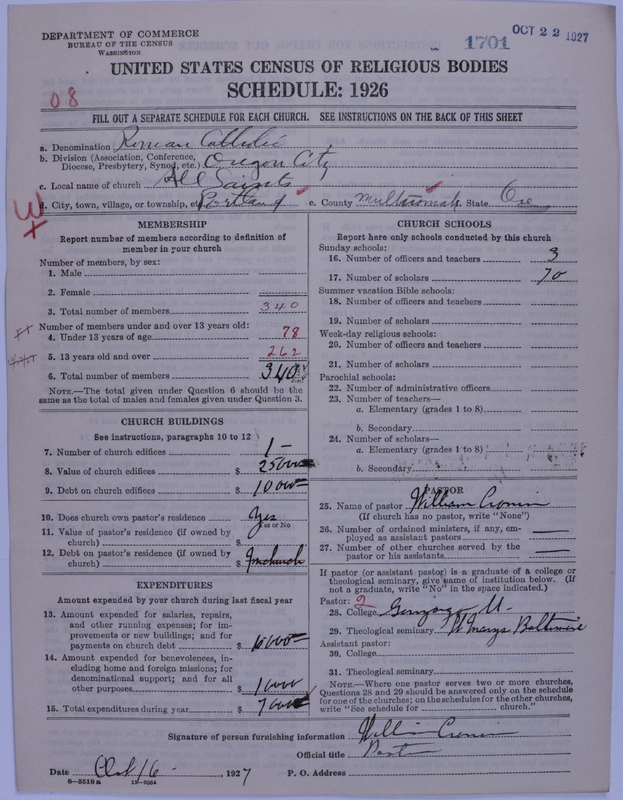 DEPARTMENT OF COMMERCE
BUREAU OF THE CENSUS
WASHINGTON
1701
OCT 22 1927
UNITED STATES CENSUS OF RELIGIOUS BODIES
08
SCHEDULE: 1926
FILL OUT A SEPARATE SCHEDULE FOR EACH CHURCH. SEE INSTRUCTIONS ON THE BACK OF THIS SHEET
a. Denomination Roman Catholic
b. Division (Association, Conference, Diocese, Presbytery, Synod, etc.) Oregon City
c. Local name of church All Saints
d. City, town, village, or township, etc. Portland e. County Multnomah State Ore
MEMBERSHIP
Report number of members according to definition of
member in your church
Number of members, by sex:
1. Male
2. Female
3. Total number of members 340
Number of members under and over 13 years old:
4. Under 13 years of age 78
5. 13 years old and over 262
6. Total number of members 340
NOTE.—The total given under Question 6 should be the
same as the total of males and females given under Question 3.
CHURCH BUILDINGS
See instructions, paragraphs 10 to 12
7. Number of church edifices 1
8. Value of church edifices $ 25000
9. Debt on church edifices $ 10000
10. Does church own pastor's residence Yes
Yes or No
11. Value of pastor's residence (if owned by
church) $
12. Debt on pastor's residence (if owned by
church) $ In church
EXPENDITURES
Amount expended by your church during last fiscal year
13. Amount expended for salaries, repairs,
and other running expenses; for im-
provements or new buildings; and for
payments on church debt $ 6000
14. Amount expended for benevolences, in-
cluding home and foreign missions; for
denominational support; and for all
other purposes $ 1000
15. Total expenditures during year $ 7000
CHURCH SCHOOLS
Report here only schools conducted by this church
Sunday schools:
16. Number of officers and teachers 3
17. Number of scholars 70
Summer vacation Bible schools:
18. Number of officers and teachers
19. Number of scholars
Week-day religious schools:
20. Number of officers and teachers
21. Number of scholars
Parochial schools:
22. Number of administrative officers
23. Number of teachers—
a. Elementary (grades 1 to 8)
b. Secondary
24. Number of scholars—
a. Elementary (grades 1 to 8)
b. Secondary
PASTOR
25. Name of pastor William Cronin
(If church has no pastor, write "None")
26. Number of ordained ministers, if any, em-
ployed as assistant pastors
27. Number of other churches served by the
pastor or his assistants
If pastor (or assistant pastor) is a graduate of a college or
theological seminary, give name of institution below. (If
not a graduate, write "No" in the space indicated.)
Pastor: 2
28. College Gonzaga U.
29. Theological seminary St Marys Baltimore
Assistant pastor:
30. College
31. Theological seminary
NOTE.—Where one pastor serves two or more churches,
Questions 28 and 29 should be answered only on the schedule
for one of the churches; on the schedules for the other churches,
write "See schedule for church."
Signature of person furnishing information William Cronin
Official title Pastor
Date Oct 16 1927 P. O. Address
8—5518a 11—9064